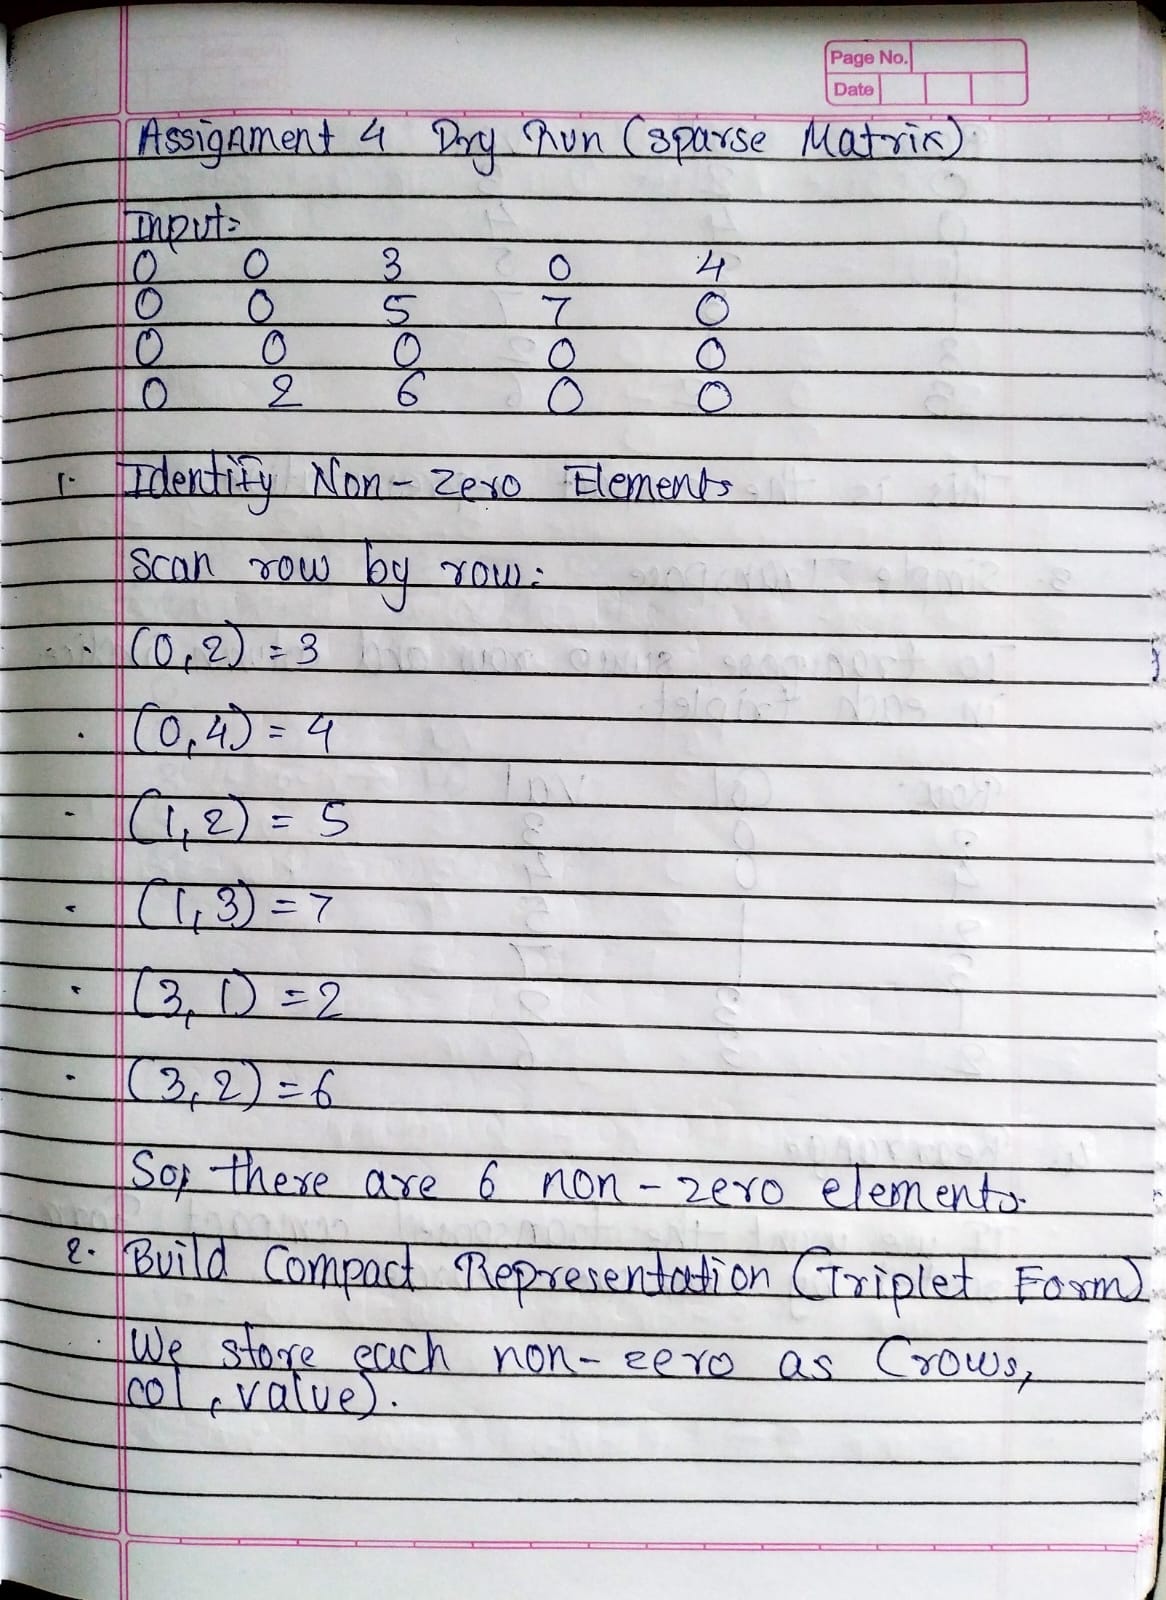 Page No.
Date
Assignment 4 Dry Run (Sparse Matrix)
Input:
0 0 3 0 4
0 0 5 7 0
0 0 0 0 0
0 2 6 0 0
1. Identify Non-Zero Elements
Scan row by row:
(0,2) = 3
(0,4) = 4
(1,2) = 5
(1,3) = 7
(3,1) = 2
(3,2) = 6
So, there are 6 non-zero elements.
2. Build Compact Representation (Triplet Form)
We store each non-zero as (rows,
col, value).